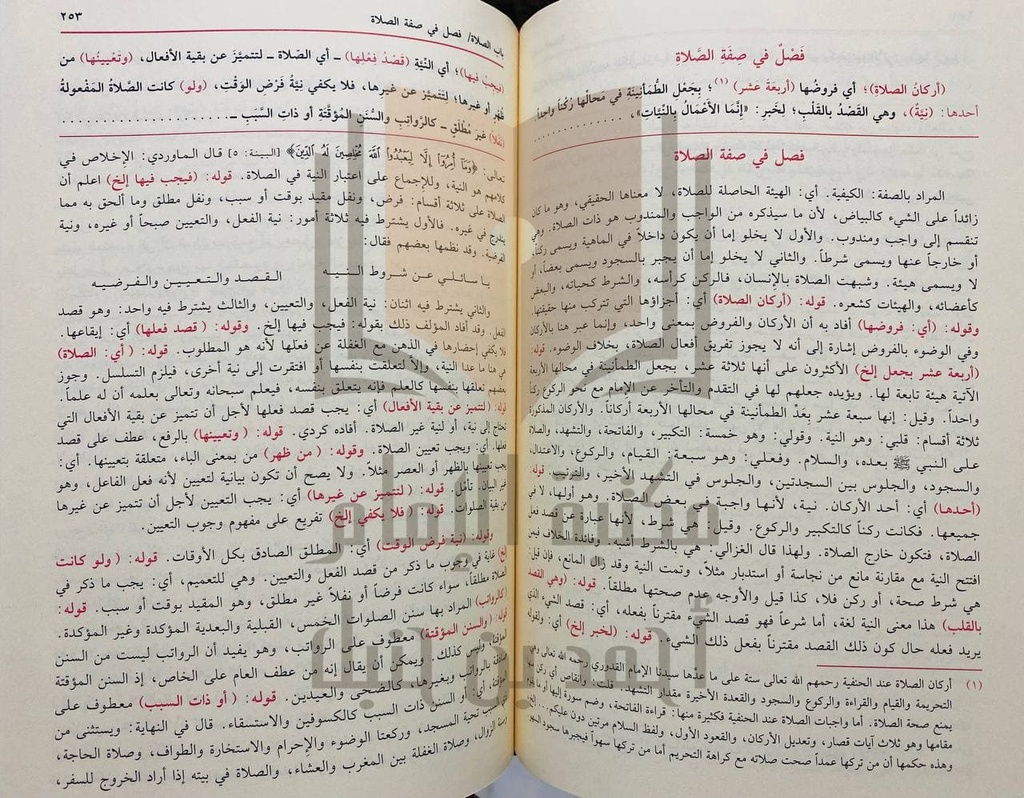 فَصْلٌ في صِفَةِ الصَّلاةِ
(أركانُ الصلاةِ)؛ أي فروضُها (أربعَةَ عشَرَ) (١)؛ بِجَعْلِ الطُّمَأنِينَةِ في محالِّها رُكْناً واحداً.
أحدها: (نيَّةٌ)، وهي القَصْدُ بالقَلْبِ؛ لِخَبر: «إنَّمَا الأعْمَالُ بالنِّيَاتِ»،
فصل في صفة الصلاة
المراد بالصفة: الكيفية. أي: الهيئة الحاصلة للصلاة، لا معناها الحقيقي، وهو ما كان
زائداً على الشيء كالبياض، لأن ما سيذكره من الواجب والمندوب هو ذات الصلاة. وهي
تنقسم إلى واجب ومندوب. والأول لا يخلو إما أن يكون داخلاً في الماهية ويسمى ركناً،
أو خارجاً عنها ويسمى شرطاً. والثاني لا يخلو إما أن يجبر بالسجود ويسمى بعضاً، أو
لا ويسمى هيئة. وشبهت الصلاة بالإنسان، فالركن كرأسه، والشرط كحياته، والبعض
كأعضائه، والهيئات كشعره. قوله: (أركان الصلاة) أي: أجزاؤها التي تتركب منها حقيقتها.
وقوله: (أي: فروضها) أفاد به أن الأركان والفروض بمعنى واحد، وإنما عبر هنا بالأركان
وفي الوضوء بالفروض إشارة إلى أنه لا يجوز تفريق أفعال الصلاة، بخلاف الوضوء. قوله:
(أربعة عشر بجعل إلخ) الأكثرون على أنها ثلاثة عشر، بجعل الطمأنينة في محالها الأربعة
الآتية هيئة تابعة لها. ويؤيده جعلهم لها في التقدم والتأخر عن الإمام مع نحو الركوع ركناً
واحداً. وقيل: إنها سبعة عشر بِعَدِّ الطمأنينة في محالها الأربعة أركاناً. والأركان المذكورة
ثلاثة أقسام: قلبي: وهو النية. وقولي: وهو خمسة: التكبير، والفاتحة، والتشهد، والصلاة
على النبي ﷺ بعده، والسلام. وفعلي: وهو سبعة: القيام، والركوع، والاعتدال،
والسجود، والجلوس بين السجدتين، والجلوس في التشهد الأخير، والترتيب. قوله:
(أحدها) أي: أحد الأركان. نية، لأنها واجبة في بعض الصلاة. وهو أولها، لا في
جميعها. فكانت ركناً كالتكبير والركوع. وقيل: هي شرط، لأنها عبارة عن قصد فعل
الصلاة، فتكون خارج الصلاة. ولهذا قال الغزالي: هي بالشرط أشبه. وفائدة الخلاف فيمن
افتتح النية مع مقارنة مانع من نجاسة أو استدبار مثلاً، وتمت النية وقد زال المانع، فإن قيل:
هي شرط صحة، أو ركن فلا، كذا قيل والأوجه عدم صحتها مطلقاً. قوله: (وهي القصد
بالقلب) هذا معنى النية لغة، أما شرعاً فهو قصد الشيء مقترناً بفعله، أي: قصد الشيء الذي
يريد فعله حال كون ذلك القصد مقترناً بفعل ذلك الشيء. قوله: (لخبر إلخ) أي: ولقوله
(١) أركان الصلاة عند الحنفية رحمهم الله تعالى ستة على ما عدها سيدنا الإمام القدوري رحمه الله تعالى وهي
التحريمة والقيام والقراءة والركوع والسجود والقعدة الأخيرة مقدار التشهد. قلت: وأنقاص أي ركن منها
يمنع صحة الصلاة. أما واجبات الصلاة عند الحنفية فكثيرة منها: قراءة الفاتحة، وضم سورة إليها أو ما يقوم
مقامها وهو ثلاث آيات قصار، وتعديل الأركان، والقعود الأول، ولفظ السلام مرتين دون عليكم.
وهذه حكمها أن من تركها عمداً صحت صلاته مع كراهة التحريم أما من تركها سهواً فيجبرها سجود السهو
باب الصلاة/ فصل في صفة الصلاة
٢٥٣
(فيجبُ فيها)؛ أي النيَّةِ (قَصْدُ فِعْلِها) ـ أي الصَّلاة ـ لتتميَّزَ عن بقية الأفعال، (وتَعْيينُها) من
ظُهْرٍ أو غيرها؛ لِتتميَّزَ عن غيرها، فلا يكفي نيَّةُ فَرْضِ الوَقْتِ، (ولو) كانت الصلاةُ المَفْعولةُ
(نَفْلاً) غير مُطْلَقٍ ـ كالرَّواتِبِ والسُّنَنِ المُؤقَّتةِ أو ذاتِ السَّبَبِ ـ
تعالى: ﴿وَمَا أُمِرُوا إِلَّا لِيَعْبُدُوا اللَّهَ مُخْلِصِينَ لَهُ الدِّينَ﴾ [البينة: ٥] قال الماوردي: الإخلاص في
كلامهم هو النية، وللإجماع على اعتبار النية في الصلاة. قوله: (فيجب فيها إلخ) اعلم أن
الصلاة على ثلاثة أقسام: فرض، ونفل مقيد بوقت أو سبب، ونفل مطلق وما ألحق به مما
يندرج في غيره. فالأول يشترط فيه ثلاثة أمور: نية الفعل، والتعيين صبحاً أو غيره، ونية
الفرضية. وقد نظمها بعضهم فقال:
يا سائلي عن شروط النيه القصد والتعيين والفرضيه
والثاني يشترط فيه اثنان: نية الفعل، والتعيين، والثالث يشترط فيه واحد: وهو قصد
الفعل. وقد أفاد المؤلف ذلك بقوله: فيجب فيها إلخ. وقوله: (قصد فعلها) أي: إيقاعها.
فلا يكفي إحضارها في الذهن مع الغفلة عن فعلها لأنه هو المطلوب. قوله: (أي: الصلاة)
هي هنا ما عدا النية، وإلا لتعلقت بنفسها أو افتقرت إلى نية أخرى، فيلزم التسلسل. وجوز
بعضهم تعلقها بنفسها كالعلم فإنه يتعلق بنفسه، فيعلم سبحانه وتعالى بعلمه أن له علماً.
قوله: (لتتميز عن بقية الأفعال) أي: يجب قصد فعلها لأجل أن تتميز عن بقية الأفعال التي
تحتاج إلى نية، أو لنية غير الصلاة. أفاده كردي. قوله: (وتعيينها) بالرفع، عطف على قصد
فعلها. أي: ويجب تعيين الصلاة. وقوله: (من ظهر) من بمعنى الباء، متعلقة بتعيينها. أي:
يجب تعيينها بالظهر أو العصر مثلاً. ولا يصح أن تكون بيانية لتعيين لأنه فعل الفاعل، وهو
غير البيان. تأمل. قوله: (لتتميز عن غيرها) أي: يجب التعيين لأجل أن تتميز عن غيرها
من بقية الصلوات. قوله: (فلا يكفي إلخ) تفريع على مفهوم وجوب التعيين.
وقوله: (نية فرض الوقت) أي: المطلق الصادق بكل الأوقات. قوله: (ولو كانت
إلخ) غاية في وجوب ما ذكر من قصد الفعل والتعيين. وهي للتعميم، أي: يجب ما ذكر في
الصلاة مطلقاً، سواء كانت فرضاً أو نفلاً غير مطلق، وهو المقيد بوقت أو سبب. قوله:
(كالرواتب) المراد بها سنن الصلوات الخمس، القبلية والبعدية المؤكدة وغير المؤكدة.
قوله: (والسنن المؤقتة) معطوف على الرواتب، وهو يفيد أن الرواتب ليست من السنن
المؤقتة وليس كذلك. ويمكن أن يقال إنه من عطف العام على الخاص، إذ السنن المؤقتة
صادقة بالرواتب وبغيرها، كالضحى والعيدين. قوله: (أو ذات السبب) معطوف على
المؤقتة، أي: أو السنن ذات السبب كالكسوفين والاستسقاء. قال في النهاية: ويستثنى من
ذات السبب تحية المسجد، وركعتا الوضوء والإحرام والاستخارة والطواف، وصلاة الحاجة،
وسنة الزوال، وصلاة الغفلة بين المغرب والعشاء، والصلاة في بيته إذا أراد الخروج للسفر،
مكتبة الإمام
أحمد بن حنبل